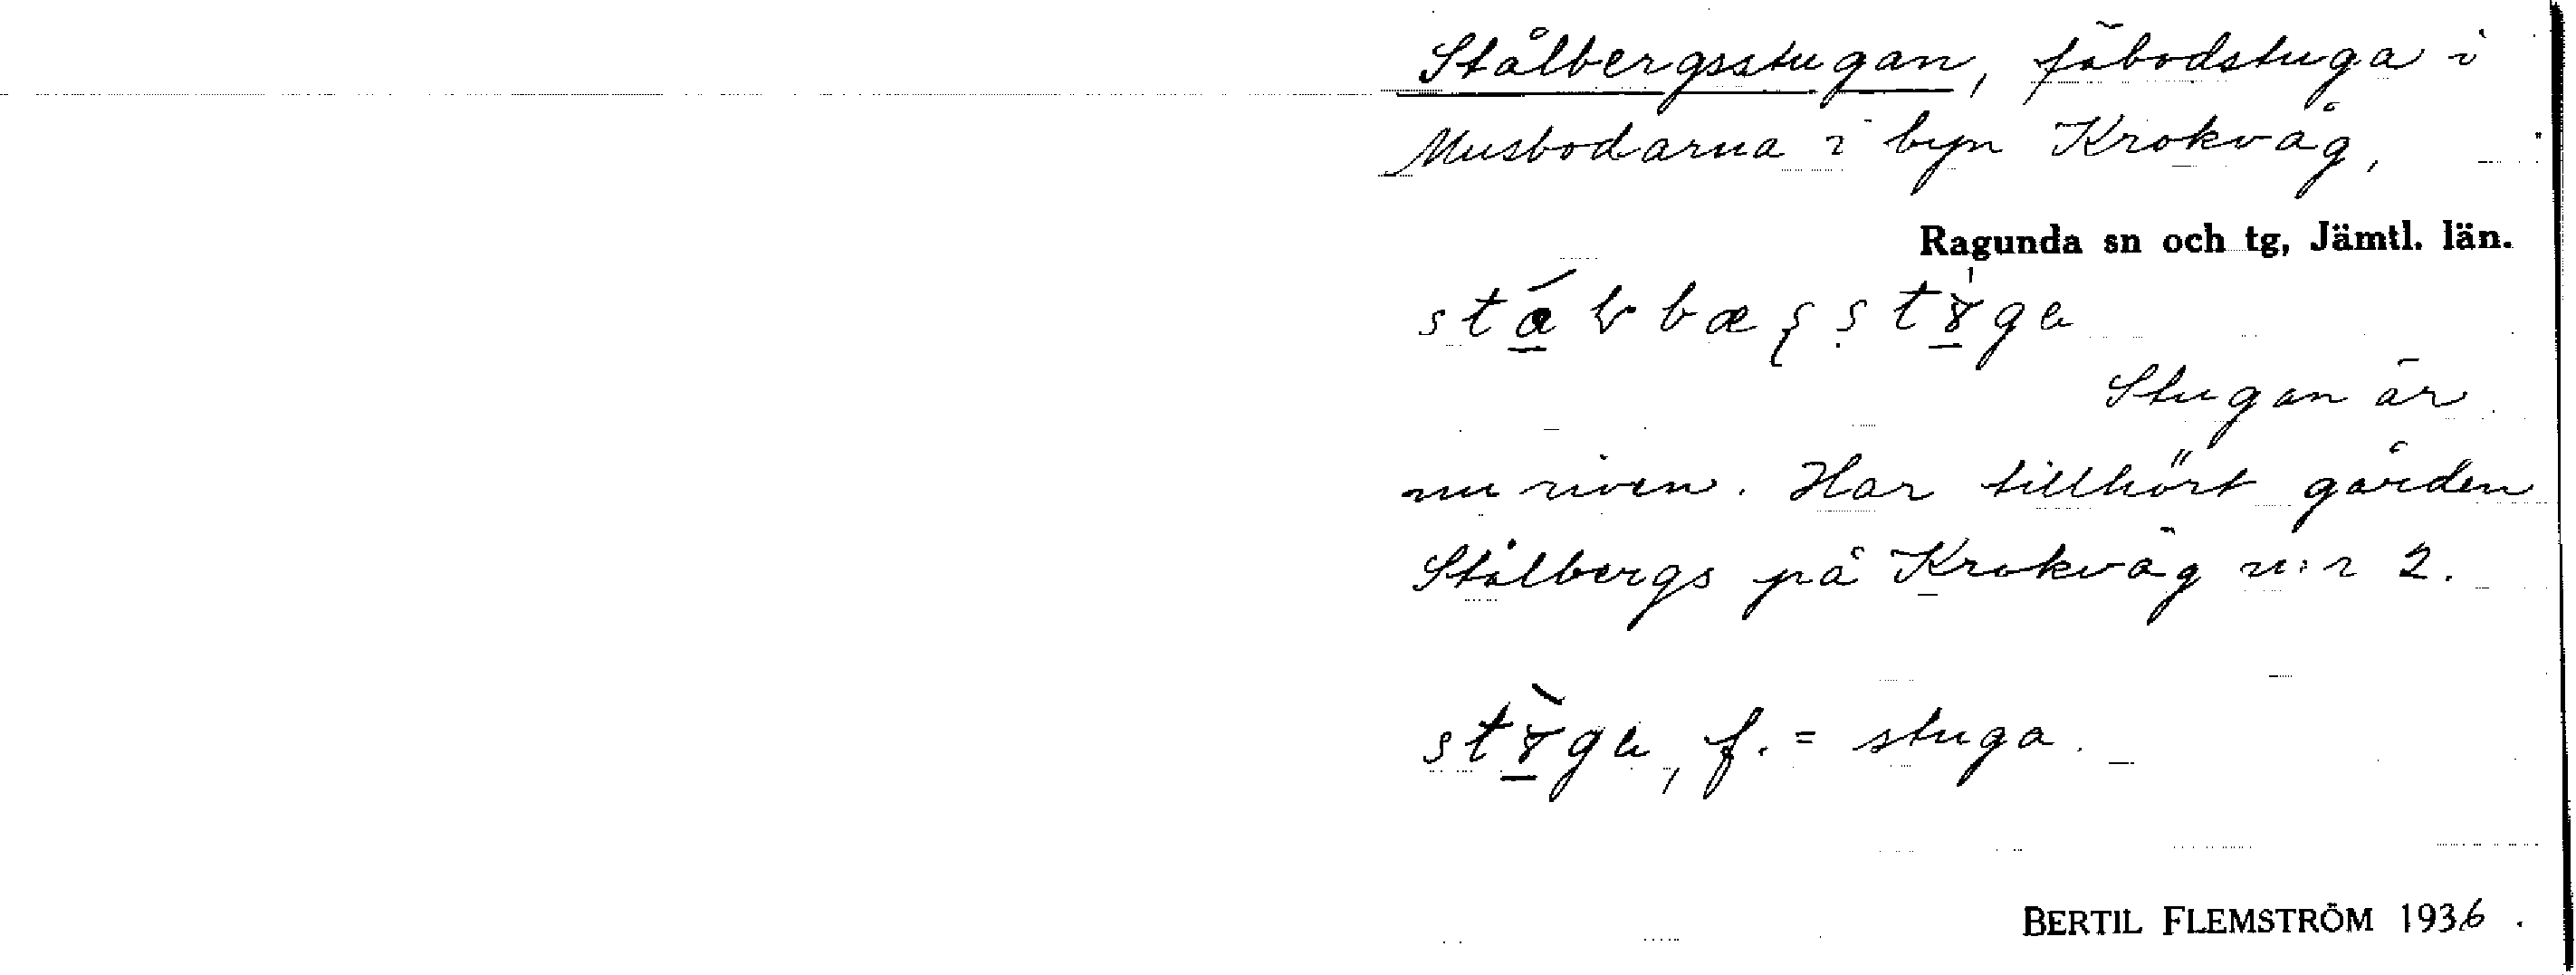 Stålbergsstugan, fäbodstuga i
Musbodarna i byn Krokvåg,
Ragunda sn och tg, Jämtl. län.
Stugan är
nu riven. Har tillhört gården
Stålbergs på Krokvåg n:r 2.
f. = stuga.
BERTIL FLEMSTRÖM 1936.